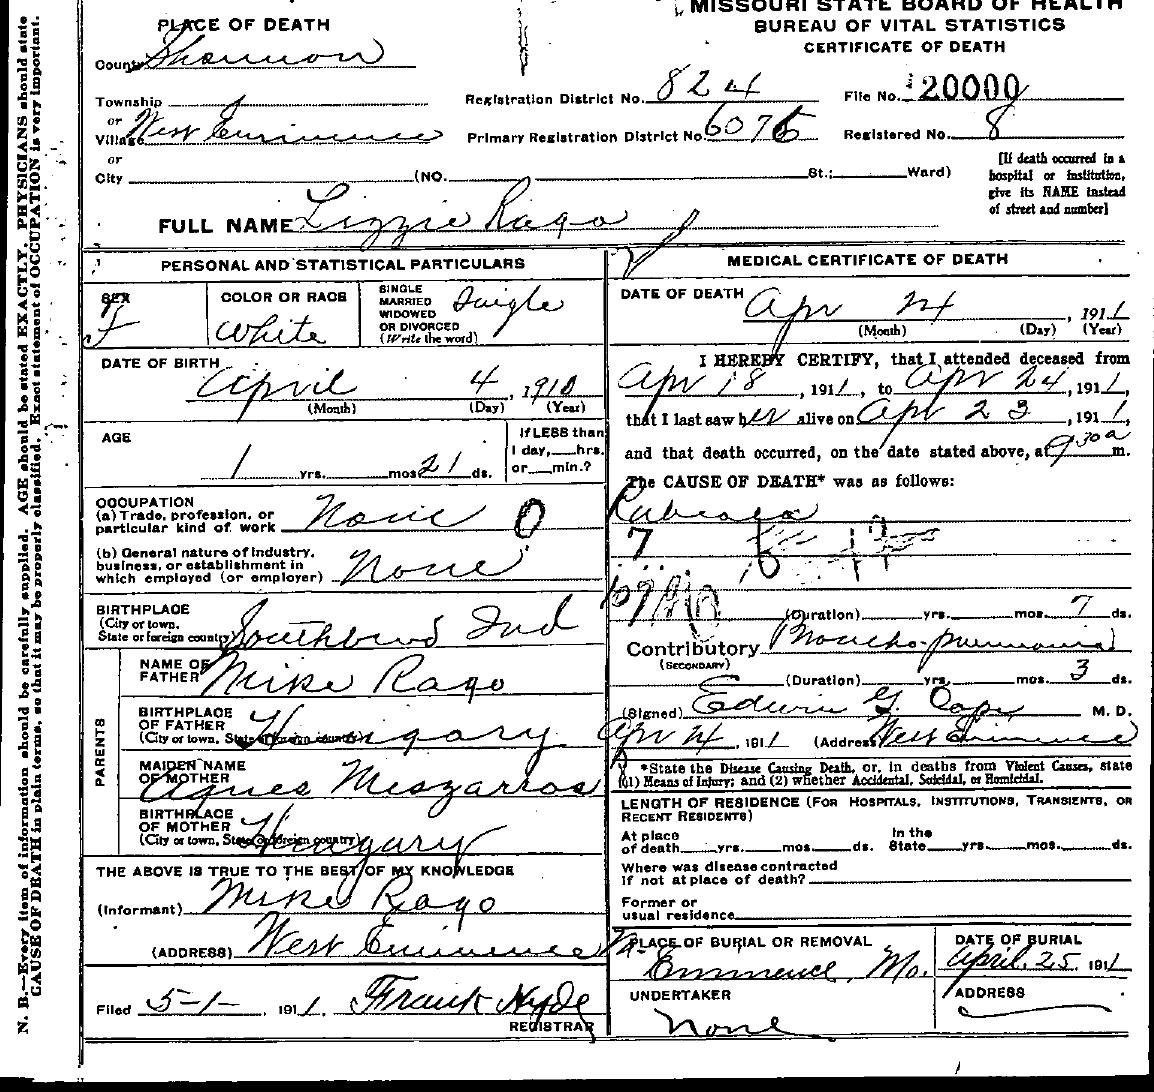 MISSOURI STATE BOARD OF HEALTH
BUREAU OF VITAL STATISTICS
CERTIFICATE OF DEATH
PLACE OF DEATH
County Shannon
Township
or
Village West Eminence
or
City (NO. St.; Ward)
Registration District No. 824
File No. 20000
Primary Registration District No. 6076
Registered No. 8
[If death occurred in a
hospital or institution,
give its NAME instead
of street and number]
FULL NAME Lizzie Rago
PERSONAL AND STATISTICAL PARTICULARS
SEX
F
COLOR OR RACE
White
SINGLE
MARRIED
WIDOWED
OR DIVORCED
(Write the word)
Single
DATE OF BIRTH
April 4, 1910
(Month) (Day) (Year)
AGE
1 yrs. mos 21 ds.
If LESS than
1 day, hrs.
or min.?
OCCUPATION
(a) Trade, profession, or
particular kind of work None
(b) General nature of industry,
business, or establishment in
which employed (or employer) None
BIRTHPLACE
(City or town,
State or foreign country) Southbend Ind
PARENTS
NAME OF
FATHER Mike Rago
BIRTHPLACE
OF FATHER
(City or town, State or foreign country) Hungary
MAIDEN NAME
OF MOTHER Agnes Meszarros
BIRTHPLACE
OF MOTHER
(City or town, State or foreign country) Hungary
THE ABOVE IS TRUE TO THE BEST OF MY KNOWLEDGE
(Informant) Mike Rago
(ADDRESS) West Eminence
Filed 5-1-, 1911, Frank Hyde
REGISTRAR
MEDICAL CERTIFICATE OF DEATH
DATE OF DEATH Apr 24, 1911
(Month) (Day) (Year)
I HEREBY CERTIFY, that I attended deceased from
Apr 18, 1911, to Apr 24, 1911,
that I last saw her alive on Apr 23, 1911,
and that death occurred, on the date stated above, at 930a m.
The CAUSE OF DEATH* was as follows:
Rubeola
7
(Duration) yrs. mos. 7 ds.
Contributory Broncho-pneumonia
(SECONDARY)
(Duration) yrs. mos. 3 ds.
(Signed) Edwin G. M. D.
Apr 24, 1911 (Address) West Eminence
*State the Disease Causing Death, or, in deaths from Violent Causes, state
(1) Means of Injury; and (2) whether Accidental, Suicidal, or Homicidal.
LENGTH OF RESIDENCE (FOR HOSPITALS, INSTITUTIONS, TRANSIENTS, OR
RECENT RESIDENTS)
At place
of death yrs. mos. ds.
In the
State yrs. mos. ds.
Where was disease contracted
if not at place of death?
Former or
usual residence
PLACE OF BURIAL OR REMOVAL
Eminence, Mo.
DATE OF BURIAL
April. 25, 1911
UNDERTAKER
None
ADDRESS
N. B.—Every item of information should be carefully supplied. AGE should be stated EXACTLY. PHYSICIANS should state
CAUSE OF DEATH in plain terms, so that it may be properly classified. Exact statement of OCCUPATION is very important.